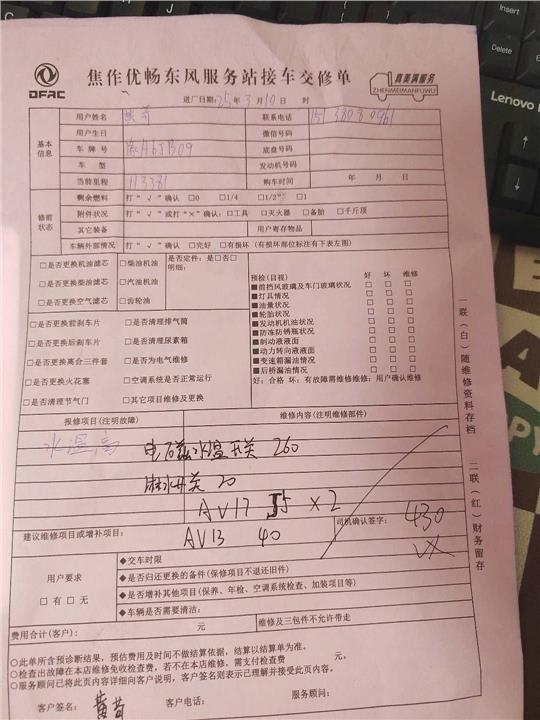 DFAC
焦作优畅东风服务站接车交修单
真美满服务
ZHENMEIMANFUWU
进厂日期:25年3月10日 时
基本信息
用户姓名 联系电话
用户生日 微信号码
车牌号 底盘号码
车型 发动机号码
当前里程 113381 购车时间 年 月 日
修前状态
剩余燃料 打“√”确认 □0 □1/4 □1/2 □1
附件状况 打“√”或打“×”确认:□工具 □灭火器 □备胎 □千斤顶
其它装备 用户寄存物品
车辆外部情况 打“√”确认 □完好 □有损坏(有损坏部位标注有下表左图)
□是否更换机油滤芯 □柴油机油 是否定件:是□否□
明细:
□是否更换柴油滤芯 □汽油机油
□是否更换空气滤芯 □齿轮油
□是否更换前刹车片 □是否清理排气筒
□是否更换后刹车片 □是否清理尿素箱
□是否更换离合三件套 □是否为电气维修
□是否更换火花塞 □空调系统是否正常运行
□是否清理节气门 □其它项目维修及更换
预检(目视) 好 坏 维修
■前挡风玻璃及车门玻璃状况 □ □ □
■灯具情况 □ □ □
■油量状况 □ □ □
■轮胎状况 □ □ □
■发动机机油状况 □ □ □
■防冻防锈瓶状况 □ □ □
■制动液液面 □ □ □
■动力转向液液面 □ □ □
■变速箱漏油情况 □ □ □
■后桥漏油情况 □ □ □
好:合格 坏:有故障需维修维修:用户确认维修
报修项目(注明故障) 维修内容(注明维修部件)
水温高 电磁水温开关 260
开关 20
AV17 35 ×2
建议维修项目或增补项目: AV13 40 司机确认签字: 430
用户要求
□有 □无
◆交车时限
◆是否归还更换的备件(保修项目不退还旧件)
◆是否增补其他项目(保养、年检、空调系统检查、加装项目等)
◆车辆是否需要清洁:
费用合计(客户): 元 维修及三包件不允许带走
○此单所含预诊断结果,预估费用及时间不做结算依据,结算以结算单为准。
○检查出故障在本店维修免收检查费,若不在本店维修,需支付检查费 元。
○服务顾问已将此页内容详细向客户说明,客户签名则表示已理解并接受此页内容。
客户签名: 客户电话: 服务顾问:
一联(白)随维修资料存档
二联(红)财务留存
Insert
Delete
Lenovo